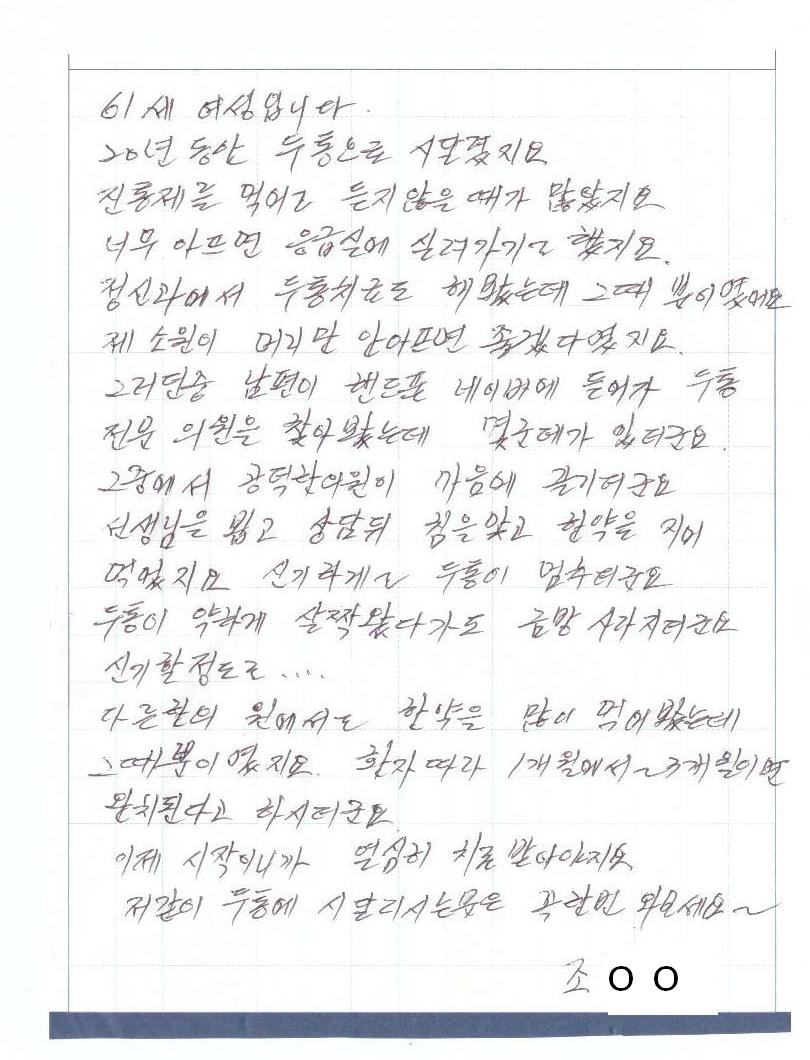 61세 여성입니다.
20년 동안 두통으로 시달렸지요
진통제를 먹어도 듣지않을 때가 많았지요
너무 아프면 응급실에 실려가기도 했지요.
정신과에서 두통치료도 해봤는데 그때 뿐이였어요
제 소원이 머리만 안아프면 좋겠다였지요.
그러던중 남편이 핸드폰 네이버에 들어가 두통
전문 의원을 찾아봤는데 몇군데가 있더군요.
그중에서 광덕한의원이 마음에 끌기더군요
선생님을 뵙고 상담뒤 침을맞고 한약을 지어
먹었지요 신기하게도 두통이 멈추더군요
두통이 약하게 살짝왔다가도 금방 사라지더군요
신기할정도로....
다른한의원에서도 한약을 많이 먹어봤는데
그때뿐이였지요. 환자따라 1개월에서~3개월이면
완치된다고 하시더군요
이제 시작이니까 열심히 치료받아야지요
저같이 두통에 시달리시는분은 꼭한번 와보세요~
조 O O